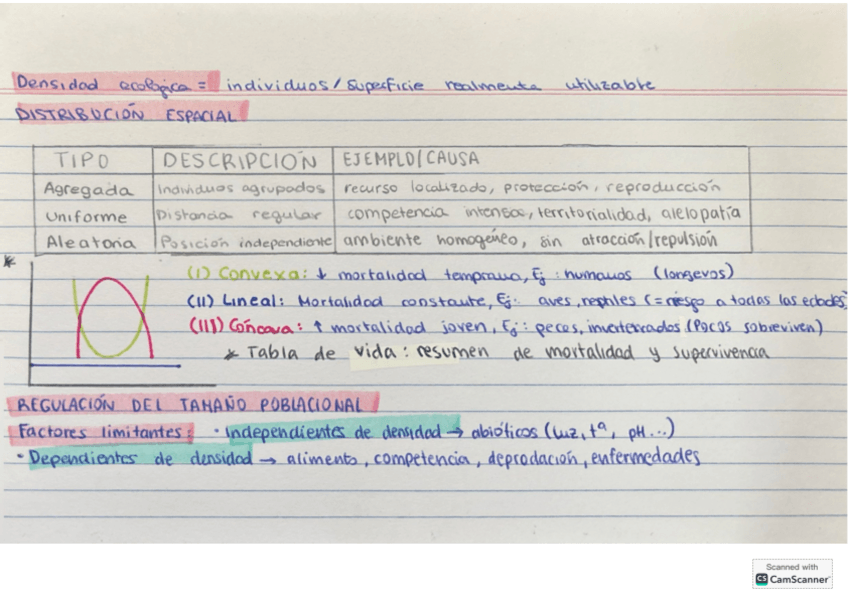 Densidad ecológica = individuos/superficie realmente utilizable
DISTRIBUCIÓN ESPACIAL
TIPO DESCRIPCIÓN EJEMPLO/CAUSA
Agregada Individuos agrupados recurso localizado, protección, reproducción
Uniforme Distancia regular competencia intensa, territorialidad, alelopatía
Aleatoria Posición independiente ambiente homogéneo, sin atracción/repulsión
* (I) Convexa: ↓ mortalidad temprana, Ej: humanos (longevos)
(II) Lineal: Mortalidad constante, Ej: aves, reptiles (= riesgo a todas las edades)
(III) Cóncava: ↑ mortalidad joven, Ej: peces, invertebrados (Pocos sobreviven)
* Tabla de vida: resumen de mortalidad y supervivencia
REGULACIÓN DEL TAMAÑO POBLACIONAL
Factores limitantes: · Independientes de densidad → abióticos (luz, tª, pH...)
· Dependientes de densidad → alimento, competencia, depredación, enfermedades
Scanned with
CS CamScanner